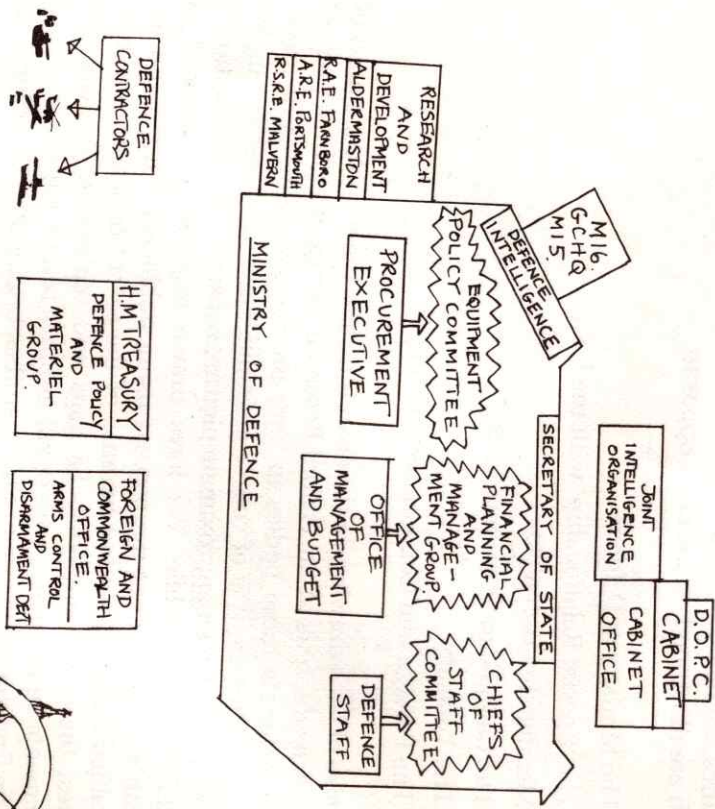 D.O.P.C.
CABINET
CABINET
OFFICE
JOINT
INTELLIGENCE
ORGANISATION
MI6.
GCHQ
MI5
DEFENCE
INTELLIGENCE
SECRETARY OF STATE
EQUIPMENT
POLICY COMMITTEE
FINANCIAL
PLANNING
AND
MANAGE-
MENT GROUP.
CHIEFS
OF
STAFF
COMMITTEE
PROCUREMENT
EXECUTIVE
OFFICE
OF
MANAGEMENT
AND BUDGET
DEFENCE
STAFF
MINISTRY OF DEFENCE
RESEARCH
AND
DEVELOPMENT
ALDERMASTON
R.A.E. FARNBORO
A.R.E. PORTSMOUTH
R.S.R.E. MALVERN
DEFENCE
CONTRACTORS
H.M TREASURY
DEFENCE POLICY
AND
MATERIEL
GROUP.
FOREIGN AND
COMMONWEALTH
OFFICE.
ARMS CONTROL
AND
DISARMAMENT DEPT